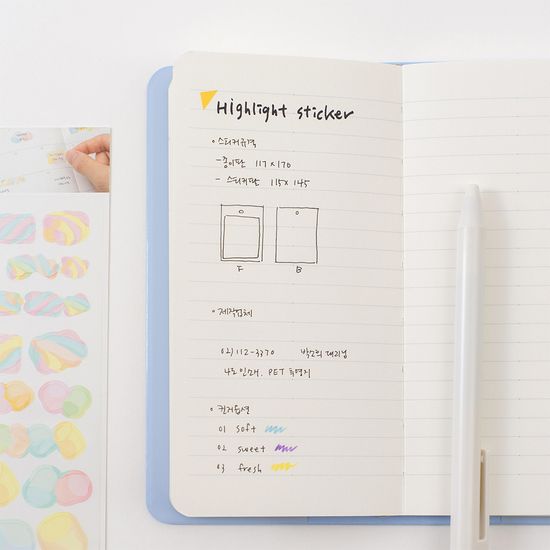 Highlight sticker
• 스티커규격
- 종이판 117 x 170
- 스티커판 115 x 145
F B
• 제작업체
02) 112-3370 박소희 대리님
나로 인쇄. PET 투명지
• 컬러옵션
01 soft
02 sweet
03 fresh